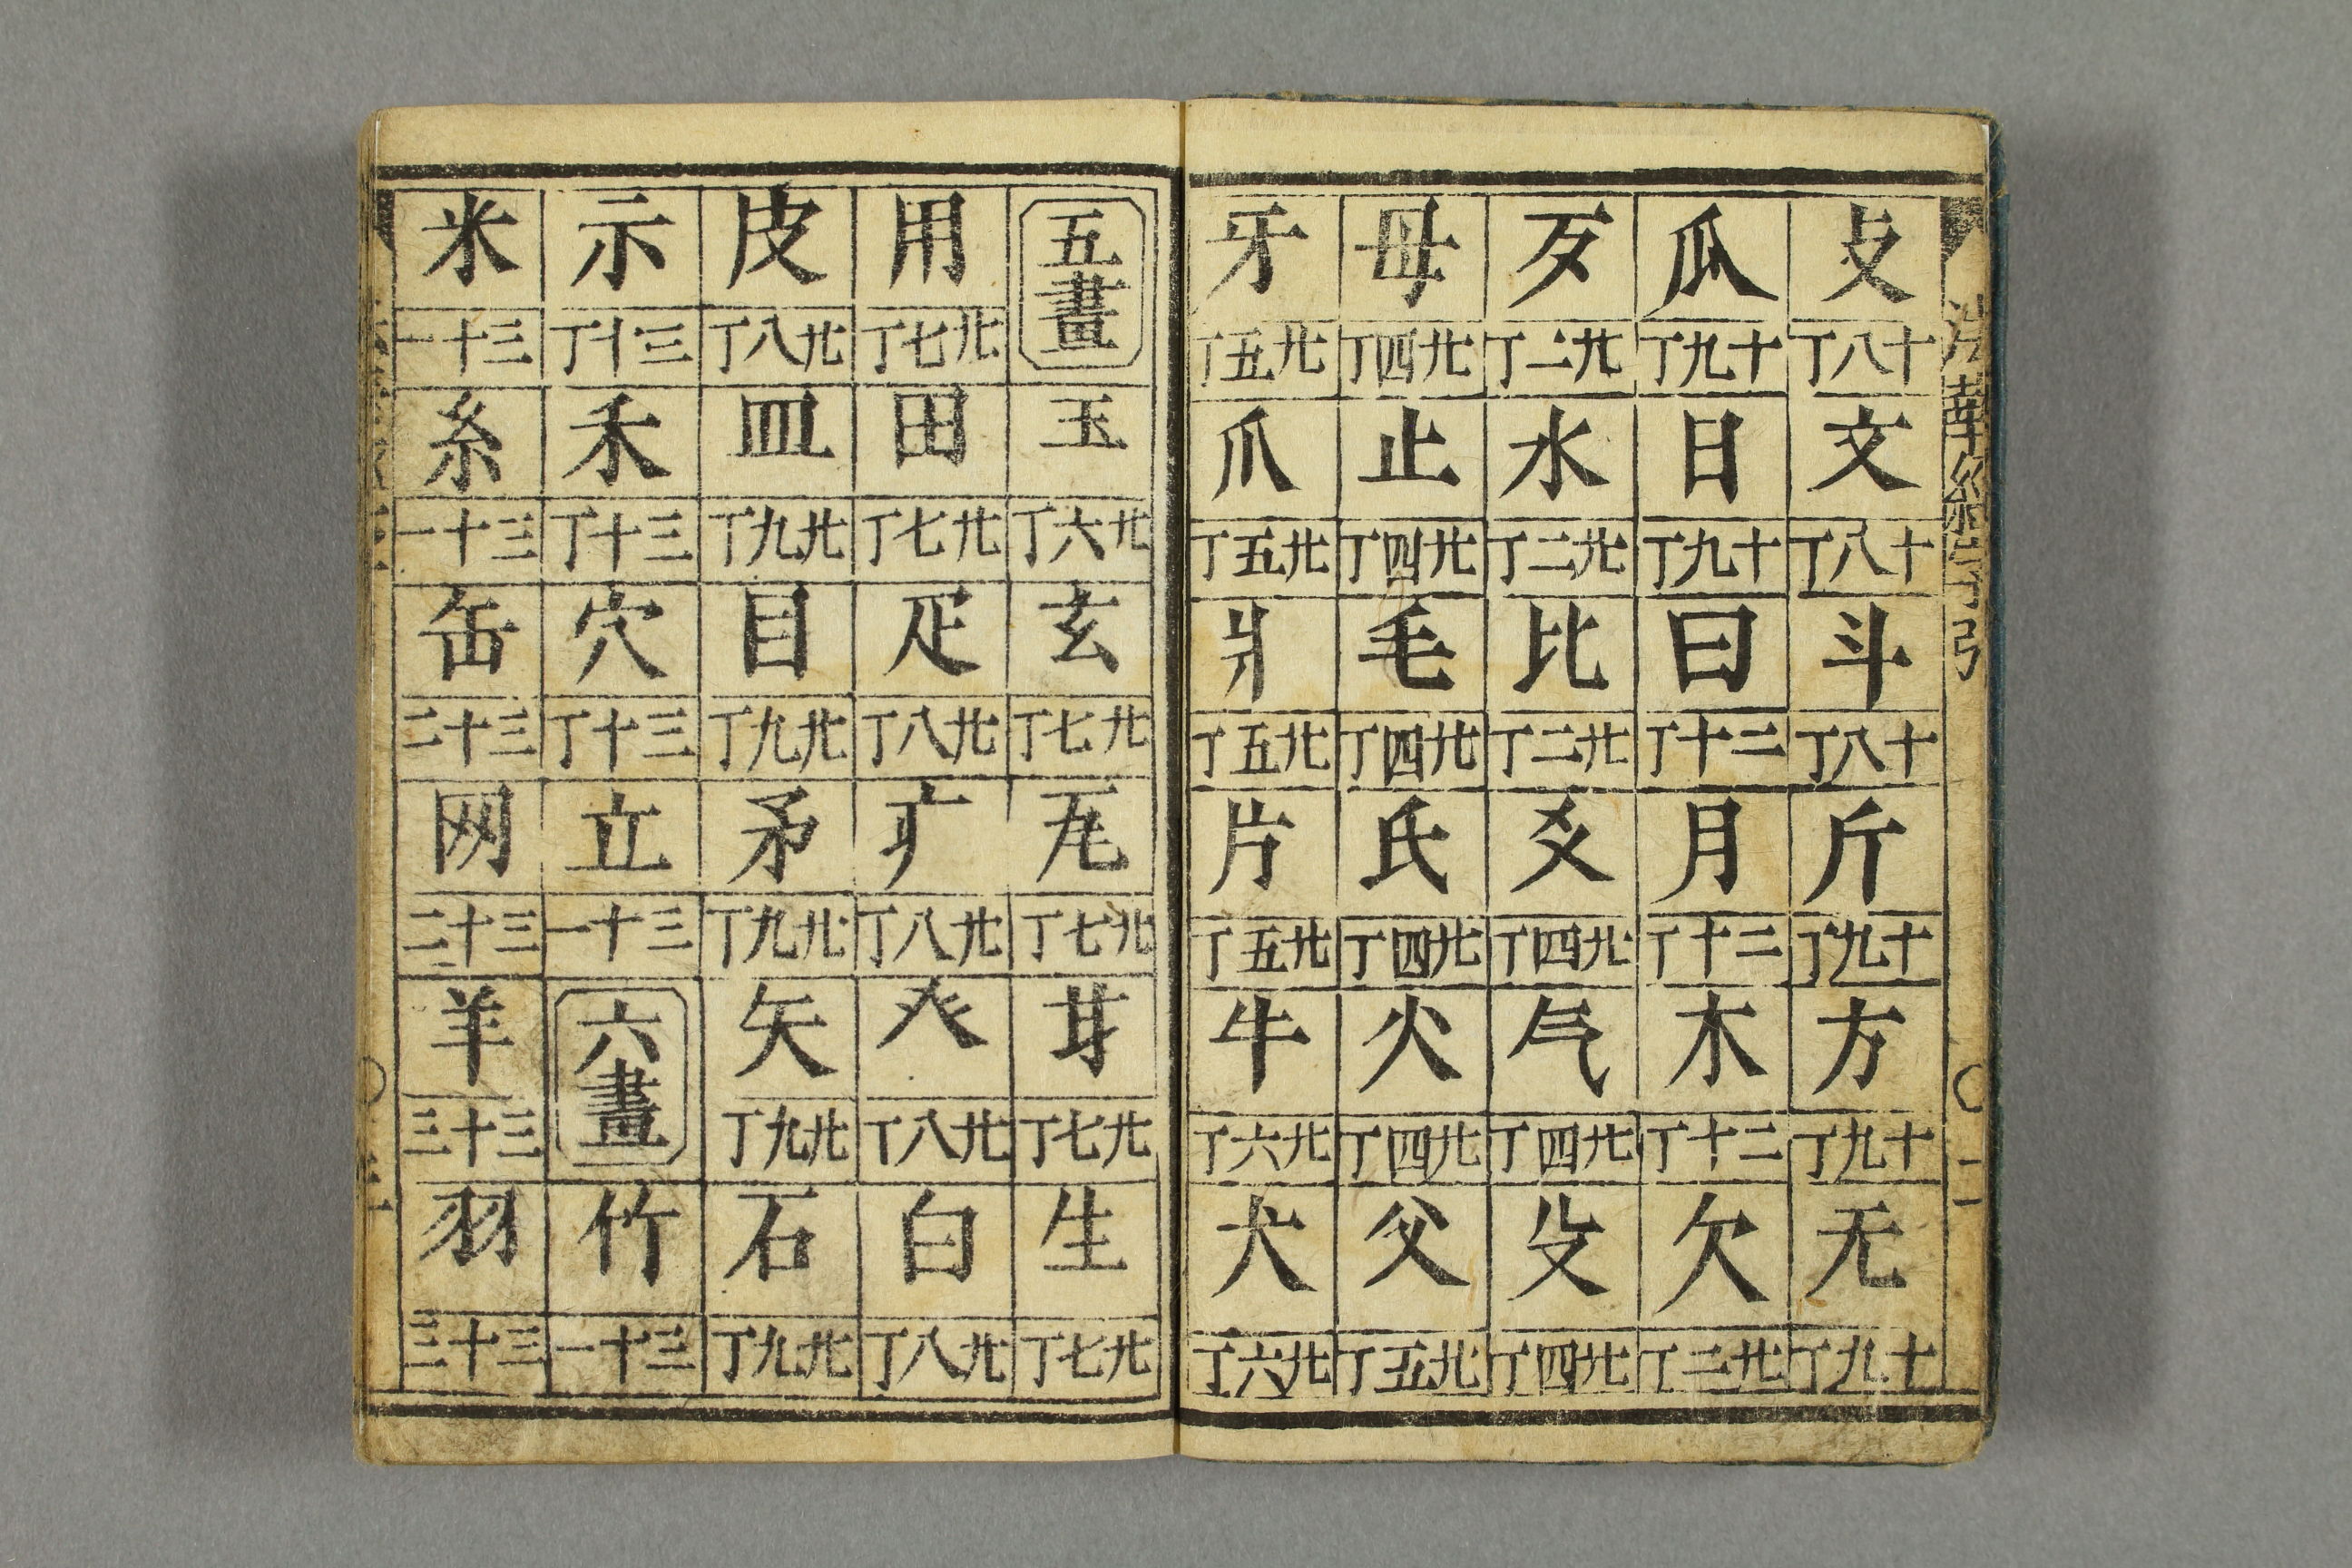 法華經字引 〇 二
攴 十八丁 文 十八丁 斗 十八丁 斤 十九丁 方 十九丁 无 十九丁
瓜 十九丁 日 十九丁 曰 二十丁 月 二十丁 木 二十丁 欠 廿二丁
歹 廿二丁 水 廿二丁 比 廿二丁 爻 廿四丁 气 廿四丁 殳 廿四丁
毋 廿四丁 止 廿四丁 毛 廿四丁 氏 廿四丁 火 廿四丁 父 廿五丁
牙 廿五丁 爪 廿五丁 爿 廿五丁 片 廿五丁 牛 廿六丁 犬 廿六丁
五畫 玉 廿六丁 玄 廿七丁 瓦 廿七丁 甘 廿七丁 生 廿七丁
用 廿七丁 田 廿七丁 疋 廿八丁 疒 廿八丁 癶 廿八丁 白 廿八丁
皮 廿八丁 皿 廿九丁 目 廿九丁 矛 廿九丁 矢 廿九丁 石 廿九丁
示 三十丁 禾 三十丁 穴 三十丁 立 三十一 六畫 竹 三十一
米 三十一 糸 三十一 缶 三十二 网 三十二 羊 三十三 羽 三十三